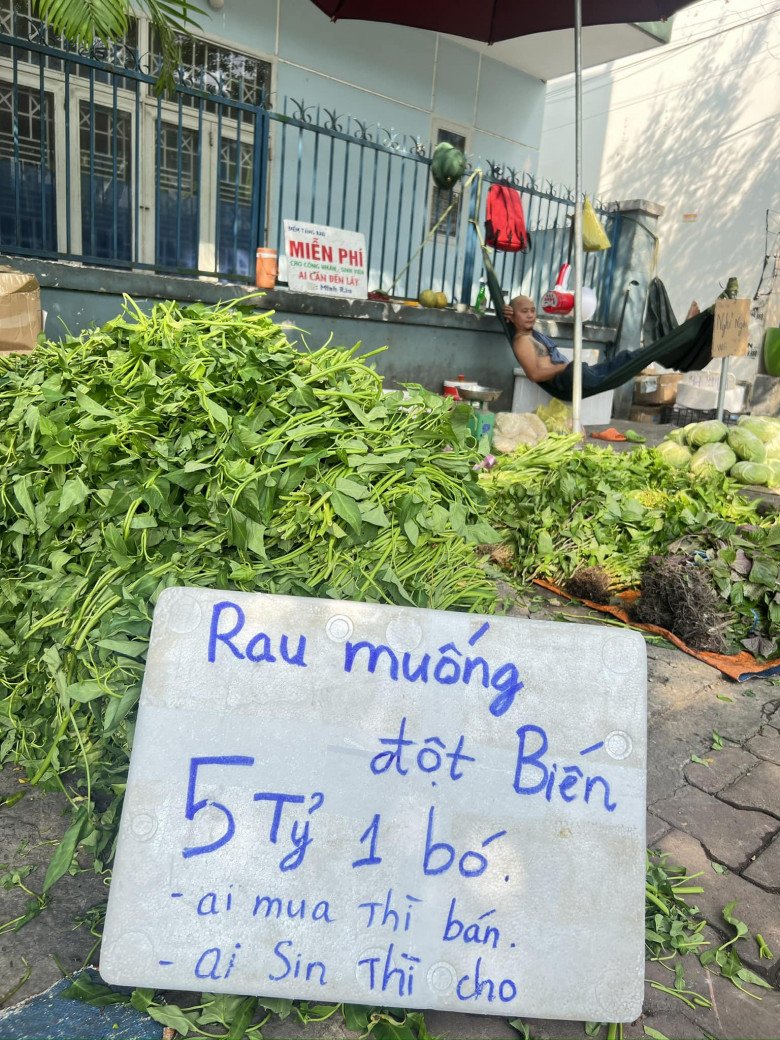 MIỄN PHÍ
CHO CÔNG NHÂN - SINH VIÊN
AI CẦN ĐẾN LẤY
Rau muống
đột Biến
5 Tỷ 1 bó.
- ai mua Thì bán.
- ai Sin Thì cho